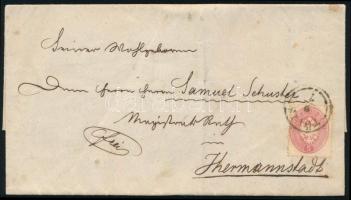 Seiner Wohlgeboren
Dem Herrn Herrn Samuel Schuster
Magistrat Rath
frei
Hermannstadt